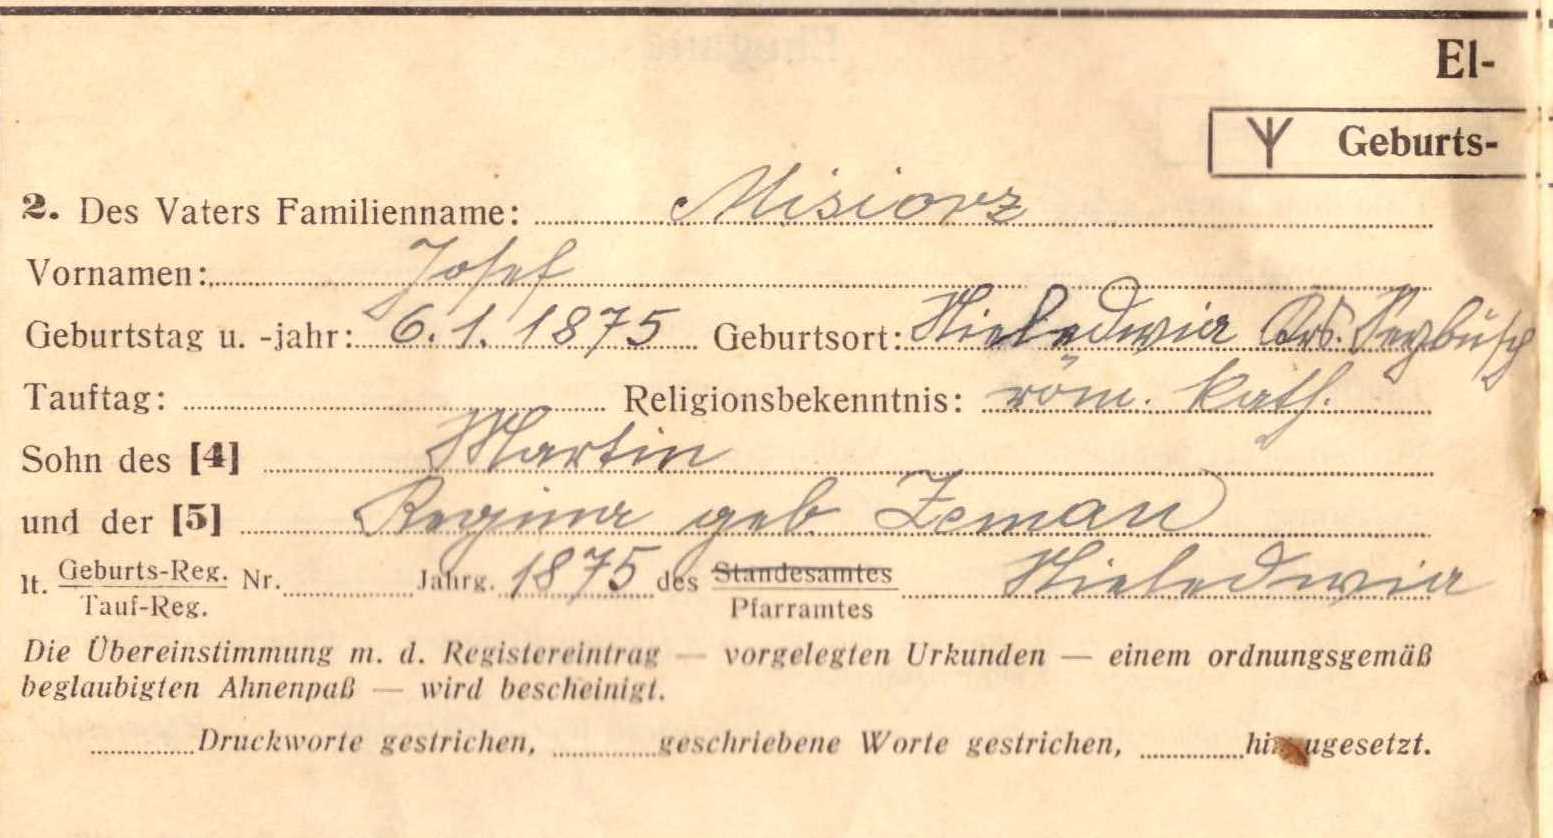 El-
Geburts-
2. Des Vaters Familienname: Misiorz
Vornamen: Josef
Geburtstag u. -jahr: 6.1.1875 Geburtsort: Nieledwia Krs. Saybusch
Tauftag: Religionsbekenntnis: röm. kath.
Sohn des [4] Martin
und der [5] Regina geb. Zeman
lt. Geburts-Reg. Nr. Jahrg. 1875 des Standesamtes Nieledwia
Tauf-Reg. Pfarramtes
Die Übereinstimmung m. d. Registereintrag — vorgelegten Urkunden — einem ordnungsgemäß
beglaubigten Ahnenpaß — wird bescheinigt.
Druckworte gestrichen, geschriebene Worte gestrichen, hinzugesetzt.